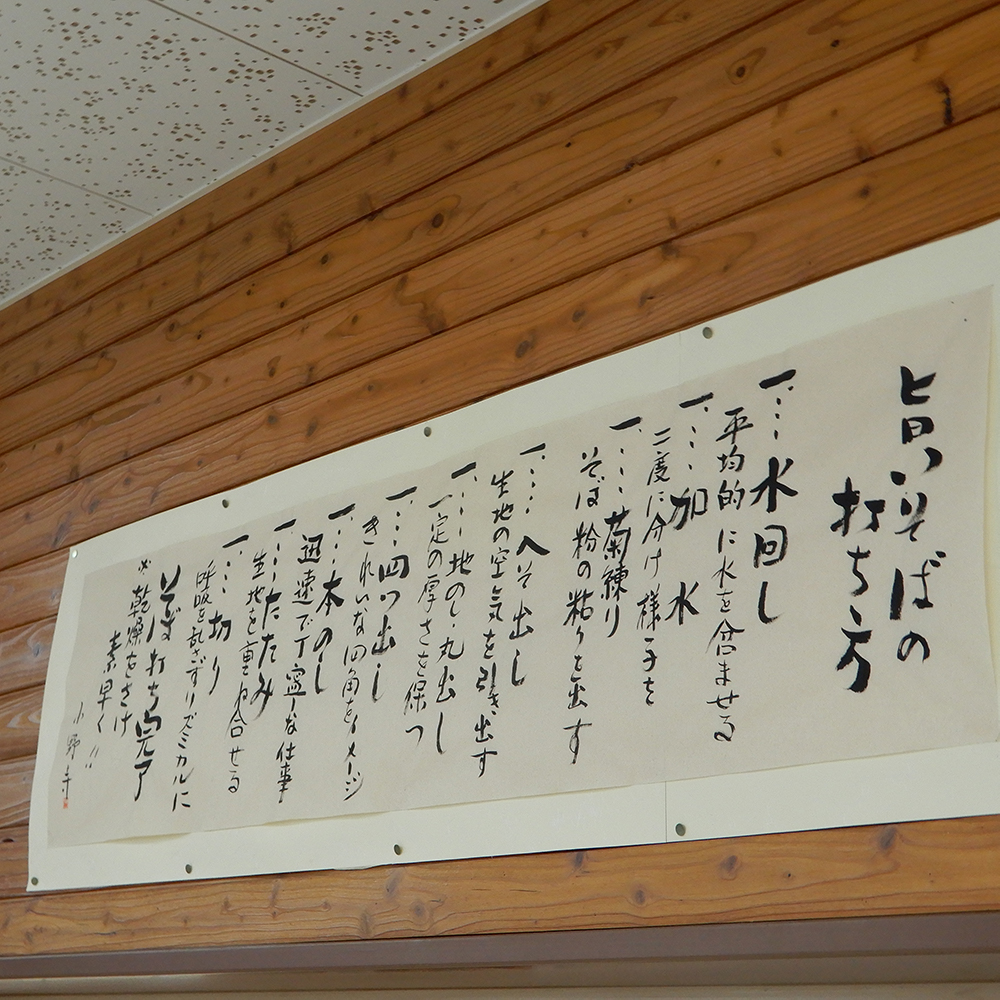 旨いそばの
打ち方
一…水回し
平均的に水を含ませる
一…加水
二度に分け様子を
一…菊練り
そば粉の粘りを出す
一…へそ出し
生地の空気を引き出す
一…地のし・丸出し
一定の厚さを保つ
一…四つ出し
きれいな四角をイメージ
一…本のし
迅速で丁寧な仕事
一…たたみ
生地を重ね合せる
一…切り
呼吸を乱さずリズミカルに
そば打ち完了
※乾燥をさけ
素早く!!
小野寺